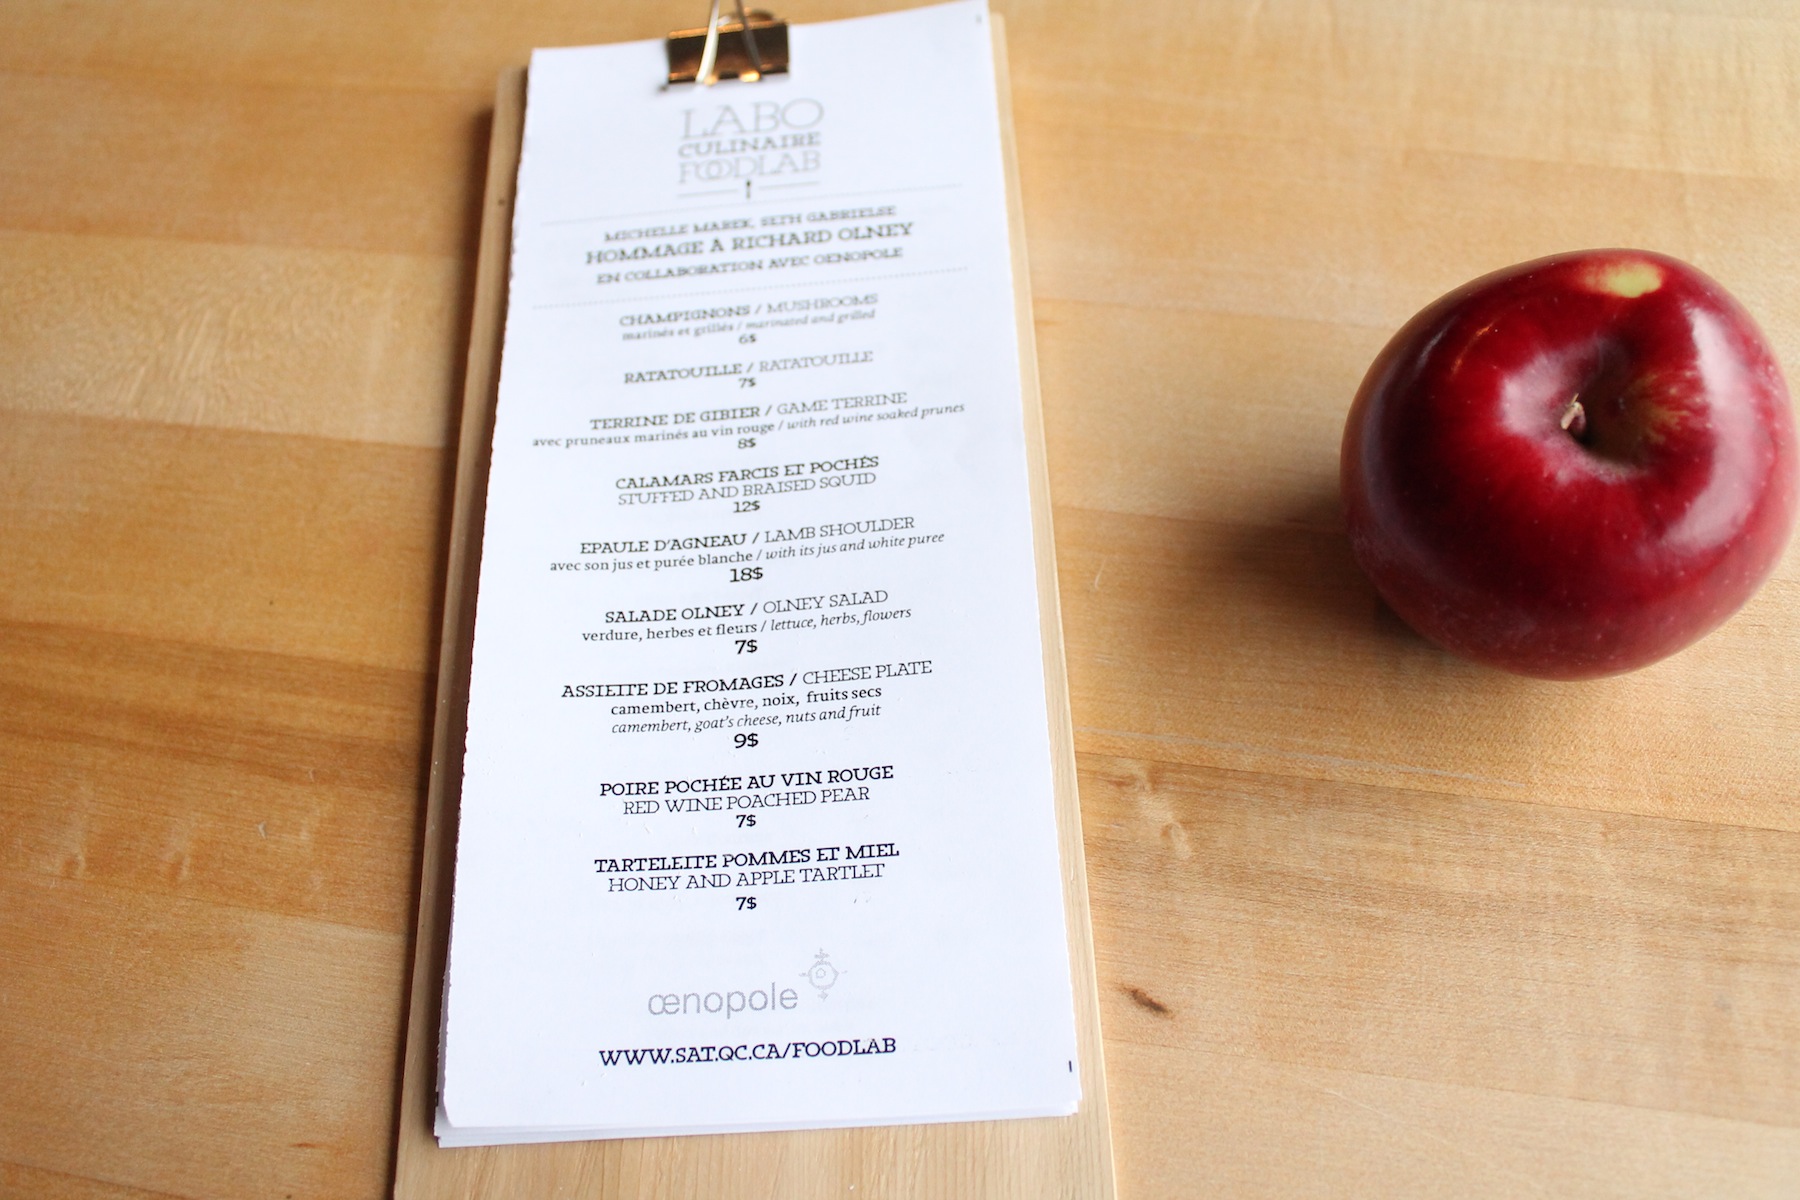 LABO
CULINAIRE
FOODLAB
MICHELLE MAREK, SETH GABRIELSE
HOMMAGE À RICHARD OLNEY
EN COLLABORATION AVEC OENOPOLE
CHAMPIGNONS / MUSHROOMS
marinés et grillés / marinated and grilled
6$
RATATOUILLE / RATATOUILLE
7$
TERRINE DE GIBIER / GAME TERRINE
avec pruneaux marinés au vin rouge / with red wine soaked prunes
8$
CALAMARS FARCIS ET POCHÉS
STUFFED AND BRAISED SQUID
12$
EPAULE D'AGNEAU / LAMB SHOULDER
avec son jus et purée blanche / with its jus and white puree
18$
SALADE OLNEY / OLNEY SALAD
verdure, herbes et fleurs / lettuce, herbs, flowers
7$
ASSIETTE DE FROMAGES / CHEESE PLATE
camembert, chèvre, noix, fruits secs
camembert, goat's cheese, nuts and fruit
9$
POIRE POCHÉE AU VIN ROUGE
RED WINE POACHED PEAR
7$
TARTELETTE POMMES ET MIEL
HONEY AND APPLE TARTLET
7$
œnopole
WWW.SAT.QC.CA/FOODLAB